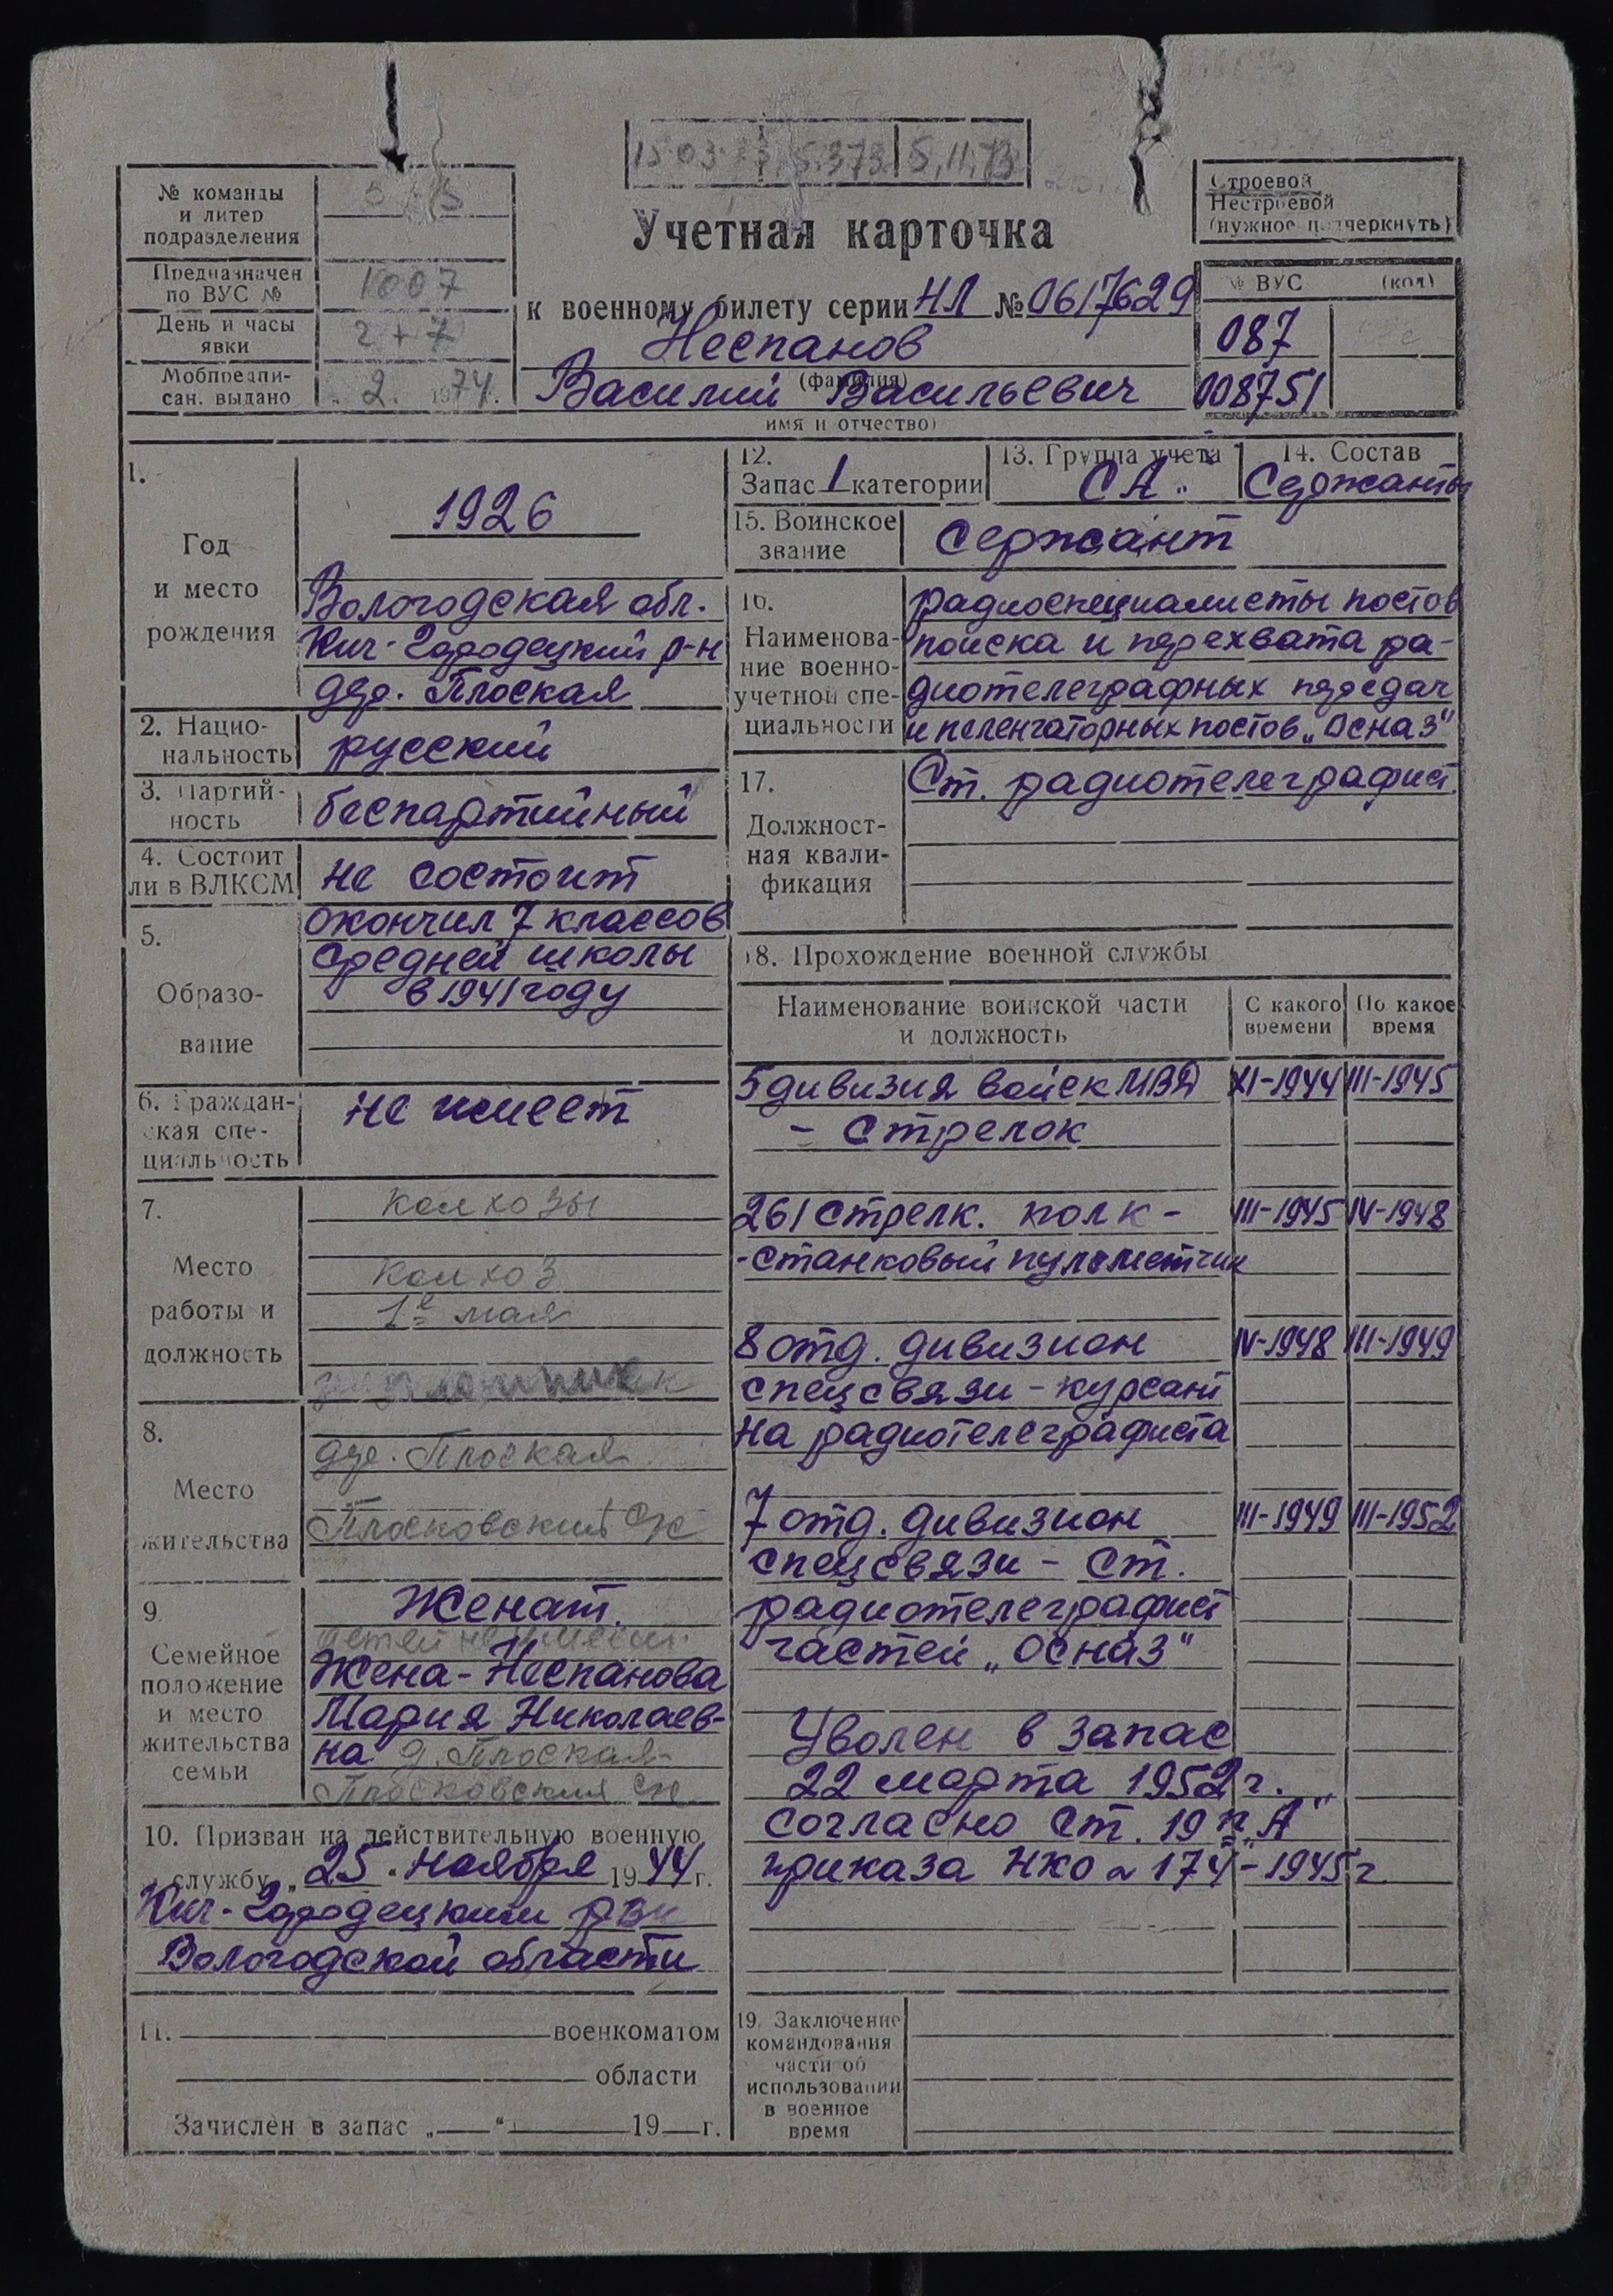 15 03 73 5.373 5.11.73
№ команды
и литер
подразделения
Предназначен
по ВУС №
1007
День и часы
явки
2 + 7
Мобпредпи-
сан. выдано
„ 2. 1974.
Учетная карточка
к военному билету серии НЛ № 0617629
Неспанов
(фамилия)
Василий Васильевич
имя и отчество)
Строевой
Нестроевой
(нужное подчеркнуть)
№ ВУС (код)
087
008751
1.
Год
и место
рождения
1926
Вологодская обл.
Кич-Городецкий р-н
дер. Плоская
2. Нацио-
нальность
русский
3. Партий-
ность
беспартийный
4. Состоит
ли в ВЛКСМ
не состоит
5.
Образо-
вание
окончил 7 классов
средней школы
в 1941 году
6. Граждан-
ская спе-
циальность
не имеет
7.
Место
работы и
должность
колхозы
колхоз
1е мая
8.
Место
жительства
дер. Плоская
Плосковский с/с
9.
Семейное
положение
и место
жительства
семьи
Женат.
детей не имеет.
Жена - Неспанова
Мария Николаев-
на д. Плоская
Плосковский с/с
10. Призван на действительную военную
службу „ 25 . ноября 1944 г.
Кич-Городецким рвк
Вологодской области
11. военкоматом
области
Зачислен в запас „ “ 19 г.
12.
Запас 1 категории
13. Группа учета
СА.
14. Состав
Сержанты
15. Воинское
звание
Сержант
16.
Наименова-
ние военно-
учетной спе-
циальности
радиоспециалисты постов
поиска и перехвата ра-
диотелеграфных передач
и пеленгаторных постов „Осназ“
17.
Должност-
ная квали-
фикация
Ст. радиотелеграфист.
18. Прохождение военной службы
Наименование воинской части
и должность
С какого
времени
По какое
время
5 дивизия войск МВД XI-1944 III-1945
- стрелок
261 стрелк. полк - III-1945 IV-1948
- станковый пулеметчик
8 отд. дивизион IV-1948 III-1949
спецсвязи - курсант
на радиотелеграфиста
7 отд. дивизион III-1949 III-1952
спецсвязи - ст.
радиотелеграфист
частей „Осназ“
Уволен в запас
22 марта 1952 г.
согласно ст. 19 п. „А“
приказа НКО № 174 - 1945 г.
19. Заключение
командования
части об
использовании
в военное
время